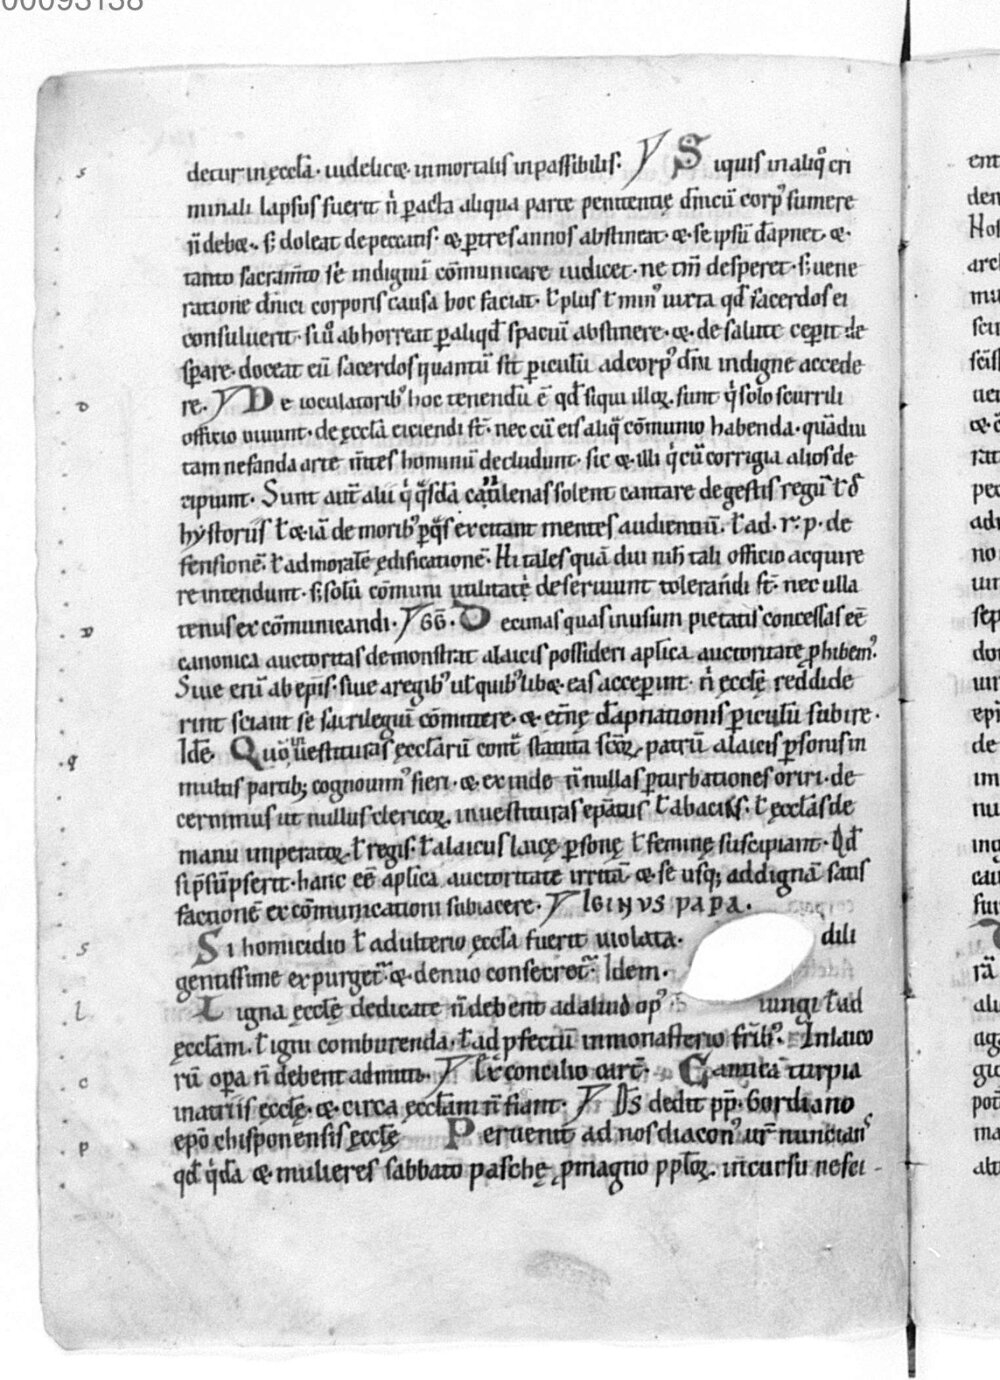 00093138
detur in ęccła · uidelicet · inmortalis inpassibilis · Siquis in aliqͦ cri
minali lapsus fuerit ñ pacta aliqua parte penitentię dñicũ corpꝰ sumere
ñ debet · s; doleat de peccatis · & ptres annos abstineat · & se ipsũ dãpnet · & ·
tanto sacram̃to sẽ indignũ cõmunicare iudicet · ne tm̃ desperet · s; uene
ratione dñici corporis causa hoc faciat · ł plus ł minꝰ iuxta qđ sacerdos ei
consuluerit · siũ abhorreat p aliqđ spaciũ abstinere · & · de salute ceperit de
sperare · doceat eũ sacerdos quantũ sit piculũ ad corpꝰ dñi indigne accede
re. De ioculatoribꝰ hoc tenendũ ẽ qđ siqui illoꝝ sunt qͥ solo scurrili
officio uiuunt · de ęccła eiciendi st̃ · nec cũ eis aliqͣ cõmunio habenda · quãdiu
tam nefanda arte m̃tes hominũ decludunt · sic & illi qͥ cũ corrigia alios de
cipiunt · Sunt aut̃ alii qͥ qͣsdã cantilenas solent cantare de gestis regũ ł đ
hystoriis ł etiã de moribꝰ p qͣs excitant mentes audientiũ · ł ad · r · p · de
fensionẽ · ł ad moralẽ ędificationẽ · Hi tales quã diu nih̃ tali officio acquire
re intendunt · s; solũ cõmuni utilitatẽ deseruiunt tolerandi st̃ · nec ulla
tenus excõmunicandi · GG · Decimas quas in usum pietatis concessas eẽ
canonica auctoritas demonstrat a laicis possideri aplica auctoritate phibemꝰ.
Siue enĩ ab ep̃is · siue a regibꝰ ul quibꝰ libet · eas acceperunt · ñ ęccłę reddide
rint sciant se sacrilegiũ cõmittere · & et̃nę dãpnationis piculũ subire ·
Idẽ. Quõ inuestituras ęccłarũ cont̃ statuta scõꝝ patrũ a laicis psonis in
multis partib; cognouimꝰ fieri · & ex inde ñ nullas pturbationes oriri · de
cernimus ut nullus clericoꝝ inuestituras ep̃atus ł abacię · ł ęccłas de
manu imperatoꝝ · ł regis · ł alaicus laicę psonę ł feminę suscipiant · Qđ
si p̃sũpserit · hanc eẽ aplica auctoritate irritã · & se usq; ad dignã satis
factionẽ excõmunicationi subiacere · IGINVS PAPA ·
Si homicidio ł adulterio ęccła fuerit uiolata · dili
gentissime expurget̃ · & denuo consecret̃ · Idem ·
Ligna ęccłę dedicate ñ debent ad aliud opꝰ iungi ł ad
ęccłam · ł igni comburenda · ł ad pfectũ in monasterio fr̃ibꝰ · In laico
rũ opa ñ debent admitti · Ex concilio cart̃ · Cantica turpia
in atriis ęccłę · & · circa ęccłam ñ fiant · Ds dedit pp̃ · Gordiano
ep̃o chisponensis ęccłę Peruenit ad nos diaconꝰ ur̃ nuncians
qđ qͥdã & mulieres sabbato paschę pmagno pploꝝ incursu nesci -
s
D
D
q
S
L
c
p